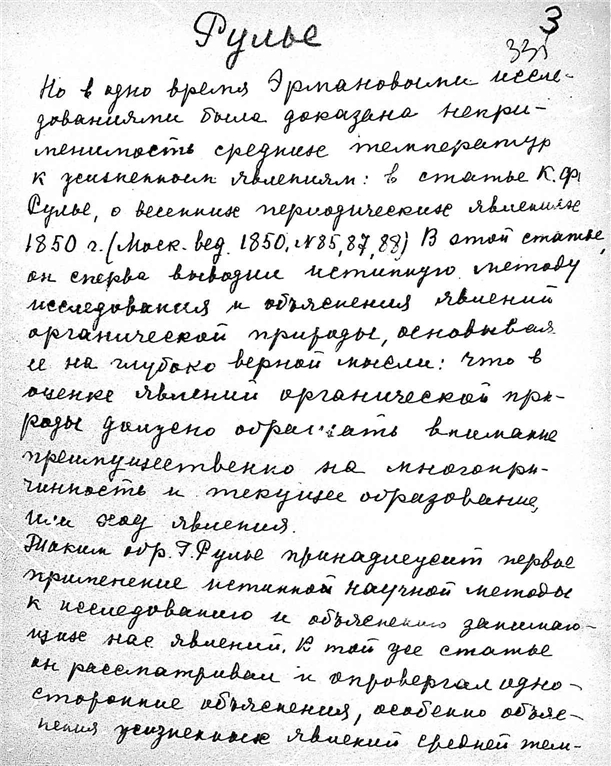 3
335
Рулье
Но в одно время Эрмановыми иссле-
дованиями была доказана непри-
менимость средних температур
к жизненным явлениям: в статье К. Ф.
Рулье, о весенних периодических явлениях
1850 г. (Моск. вед. 1850, №85, 87, 88) В этой статье,
он сперва выводил истинную методу
исследования и объяснения явлений
органической природы, основывая
ее на глубоко верной мысли: что в
оценке явлений органической при-
роды должно обращать внимание
преимущественно на многопри-
чинность и текущее образование,
или ход явления.
Таким обр. Г. Рулье принадлежит первое
применение истинной научной методы
к исследованию и объяснению занимаю-
щих нас явлений. В той же статье
он рассматривал и опровергал одно-
сторонние объяснения, особенно объяс-
нения жизненных явлений средней тем-